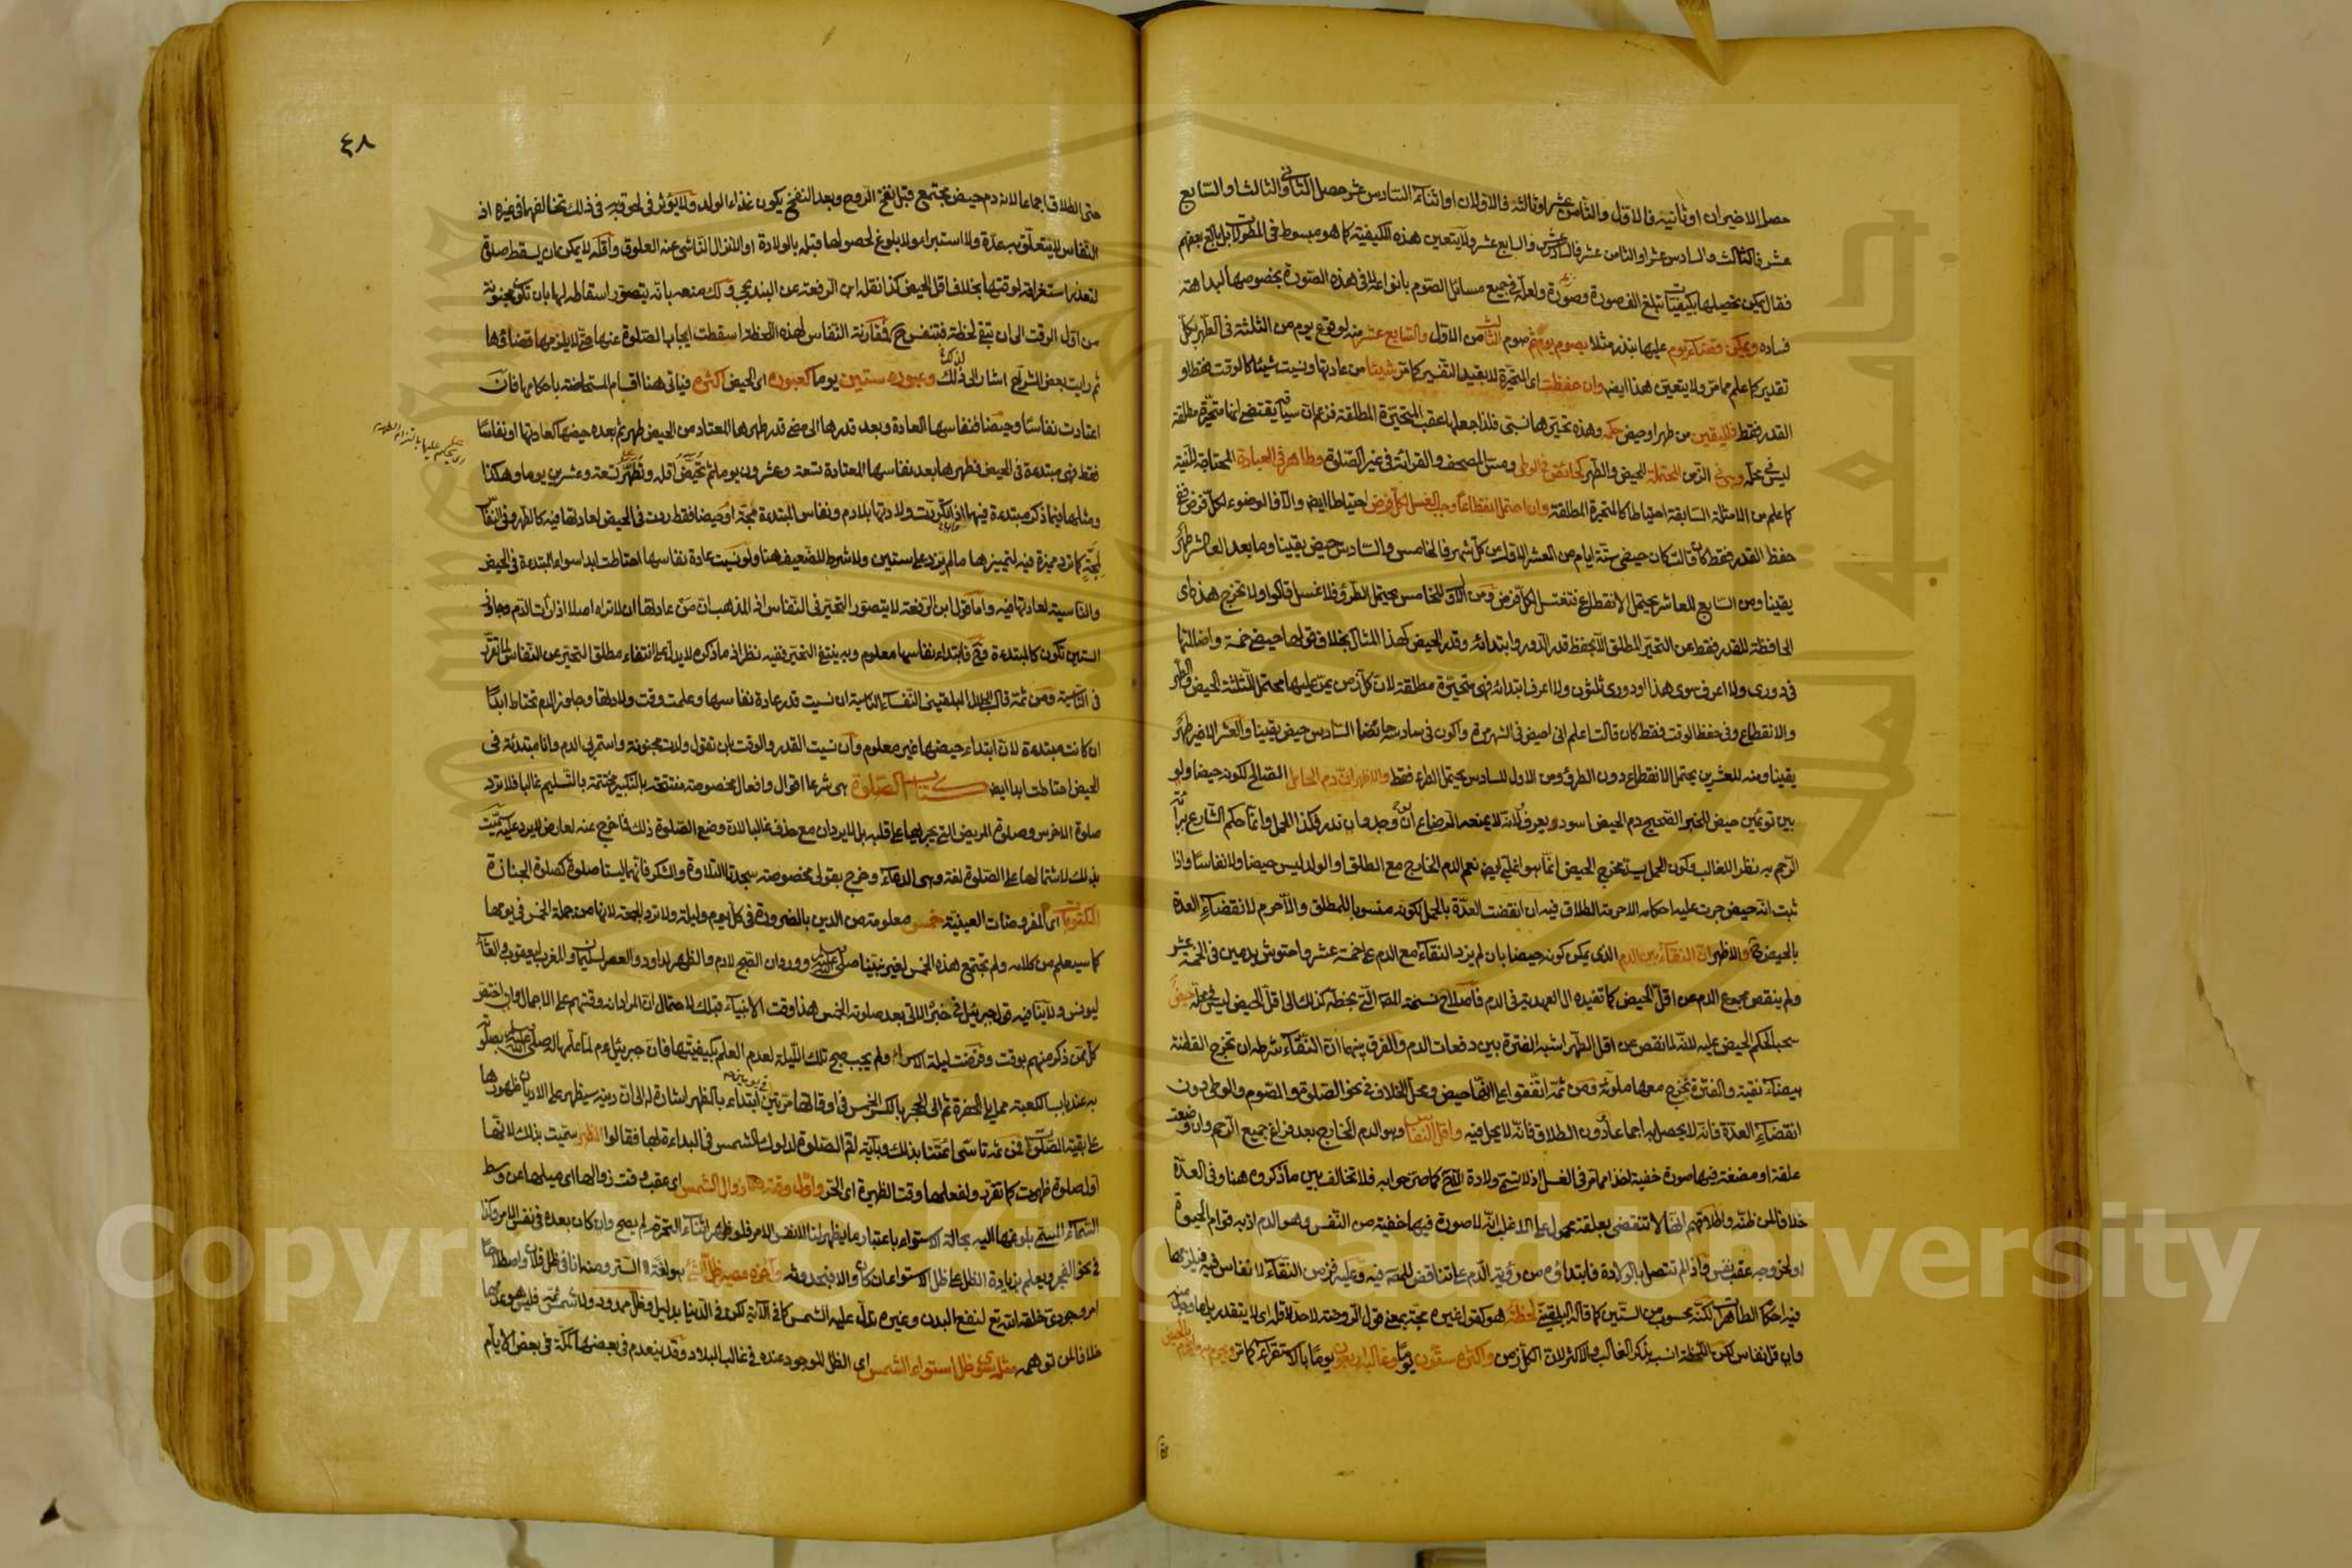 حصل الاخيران او ثانيه فالاول والثامن عشر او ثالثه فالاولان او اثناء السادس عشر حصل الثاني والثالث او السابع
عشر فالثالث والسادس عشر او الثامن عشر فالسادس عشر والسابع عشر ولا يتعين هذه الكيفية كما هو مبسوط في المطولات بل بالغ بعضهم
فقال يمكن تحصيلها بكيفيات تبلغ الف صورة وصورة ولعله في جميع مسائل الصوم بانواعه لا في هذه الصورة بخصوصها لبداهة
فساده ويمكن قضاء يوم عليها بنذر مثلا بصوم يوم ثم صوم الثالث من الاول والسابع عشر منه لوقوع يوم من الثلثة في الطهر بكل
تقدير كما علم مما مر ولا يتعين هذا ايضا وان حفظت اي المتحيرة لا بقيد التفسير كما مر شيئا من عادتها ونسيت شيئا كالوقت فقط او
القدر فقط فلليقين من طهر او حيض حكمه وهذه تحيرها نسبي فلذا جعلها عقب المتحيرة المطلقة فزعم ان سياقه يقتضي انها متحيرة مطلقة
ليس في محله وهي في الزمن المحتمل للحيض والطهر كحائض في الوطي ومس المصحف والقراءة في غير الصلوة وطاهر في العبادة المحتاجة للنية
كما علم من الامثلة السابقة احتياطا كالمتحيرة المطلقة وان احتمل انقطاعا وجب الغسل لكل فرض احتياطا ايضا والا فالوضوء لكل فرض ففي
حفظ القدر فقط كان قالت كان حيضي ستة ايام من العشر الاول من كل شهر فالخامس والسادس حيض يقينا وما بعد العاشر طهر
يقينا ومن السابع للعاشر يحتمل الانقطاع فتغتسل لكل فرض ومن الاول للخامس يحتمل الطرو فلا غسل قالوا ولا تخرج هذه اي
الحافظة للقدر فقط عن التحير المطلق الا بحفظ قدر الدور وابتدائه وقدر الحيض كهذا المثال بخلاف قولها حيضي خمسة واضللتها
في دوري ولا اعرف سوى هذا او دوري ثلثون ولا اعرف ابتدائه فهي متحيرة مطلقة لان كل زمن يمر عليها محتمل للثلثة الحيض والطهر
والانقطاع وفي حفظ الوقت فقط كان قالت اعلم اني احيض في الشهر مرة واكون في سادسه حائضا السادس حيض يقينا والعشر الاخير طهر
يقينا ومنه للعشرين يحتمل الانقطاع دون الطرو ومن الاول للسادس يحتمل الطرو فقط والاظهر ان دم الحامل الصالح لكونه حيضا ولو
بين توءمين حيض للخبر الصحيح دم الحيض اسود يعرف ولانه لا يمنعه الرضاع ان وجد وان ندر فكذا الحمل وانما حكم الشارع ببراءة
الرحم به نظرا للغالب وكون الحمل يسد مخرج الحيض انما هو اغلبي ايضا نعم الدم الخارج مع الطلق او الولد ليس حيضا ولا نفاسا واذا
ثبت انه حيض جرت عليه احكامه الا حرمة الطلاق فيه ان انقضت العدة بالحمل لكونه منسوبا للمطلق والا حرم لانقضاء العدة
بالحيض والاظهر ان النقاء بين الدم الذي يمكن كونه حيضا بان لم يزد النقاء مع الدم على خمسة عشر واحتوش بدمين في الخمسة عشر
ولم ينقص مجموع الدم عن اقل الحيض كما تفيده ال العهدية في الدم فاصلاح نسخة المصنف التي بخطه كذلك الى اقل الحيض ليس في محله حيض
سحبا لحكم الحيض عليه لانه لما نقص عن اقل الطهر اشبه الفترة بين دفعات الدم والفرق بينهما ان النقاء شرطه ان تخرج القطنة
بيضاء نقية والفترة تخرج معها ملوثة ومن ثمة اتفقوا على انها حيض ومحل الخلاف في نحو الصلوة والصوم والوطي دون
انقضاء العدة فانه لا يحصل به اجماعا ودون الطلاق فانه لا يحل فيه واقل النفاس وهو الدم الخارج بعد فراغ جميع الرحم وان وضعت
علقة او مضغة فيها صورة خفية اخذا مما مر في الغسل اذ لا تسمى ولادة الا ح كما صرحوا به فلا تخالف بين ما ذكروه هنا وفي العدة
خلافا لمن ظنه واطلاقهم انها لا تنقضي بعلقة محمول على الاغلب انه لا صورة فيها خفية من النفس وهو الدم اذ به قوام الحيوة
او لخروجه عقب نفس واذا لم تتصل بالولادة فابتداؤه من رؤية الدم على تناقض للمصنف فيه وعليه فزمن النقاء لا نفاس فيه فيلزمها
فيه احكام الطاهرات لكنه محسوب من الستين كما قاله البلقيني لحظة هو كقول غيره مجة بمعنى قول الروضة لا حد لاقله اي لا يتقدر بل ما وجد منه
وان قل نفاس لكن اللحظة انسب بذكر الغالب والاكثر لان الكل زمن واكثره ستون يوما وغالبه اربعون يوما بالاستقراء كما مر ويحرم به ما حرم بالحيض
٤٨
حتى الطلاق اجماعا لانه دم حيض مجتمع قبل نفخ الروح وبعد النفخ يكون غذاء الولد ولا يؤثر في لحوقه به في ذلك مخالفتها في غيره اذ
النفاس لا يتعلق به عدة ولا استبراء ولا بلوغ لحصولها قبله بالولادة او الانزال الناشئ عنه العلوق واقله لا يمكن ان يسقط صلوة
لتعذر استغراقه لوقتها بخلاف اقل الحيض كذا نقله ابن الرفعة عن البندنيجي ولك منعه بانه يتصور اسقاطه لها بان تكون مجنونة
من اول الوقت الى ان تبقى لحظة فتنفس ح فمقارنة النفاس لهذه اللحظة اسقطت ايجاب الصلوة عنها حتى لا يلزمها قضاؤها
ثم رايت بعض الشراح اشار الى ذلك وعبوره ستين يوما كعبوره اي الحيض اكثره فياتي هنا اقسام المستحاضة باحكامها فان
اعتادت نفاسا وحيضا فنفاسها العادة وبعد قدرها الى مضي قدر طهرها المعتاد من الحيض طهر ثم بعده حيضها كعادتها او نفاسا
اي يحكم عليها بالتزام الطهر
فقط فهي مبتدءة في الحيض فطهرها بعد نفاسها المعتادة تسعة وعشرون يوما ثم تحيض اقله وتطهر تسعة وعشرين يوما وهكذا
ومثلها فيما ذكر مبتدءة فيهما اذا تكررت ولادتها بلا دم ونفاس المبتدءة مجة او حيضا فقط ردت في الحيض لعادتها فيه كالطهر وفي النفاس
لمجة كما ترد مميزة فيه لتمييزها ما لم يزد على ستين ولا شرط للضعيف هنا ولو نسيت عادة نفاسها احتاطت ابدا سواء المبتدءة في الحيض
والناسية لعادتها فيه واما قول ابن الرفعة لا يتصور التحير في النفاس اذ المذهب ان من عادتها ان لا تراه اصلا اذا رات الدم وجاوز
الستين تكون كالمبتدءة وح فابتداء نفاسها معلوم وبه ينتفي التحير ففيه نظر اذ ما ذكره لا يدل على انتفاء مطلق التحير عن النفاس لما تقرر
في الناسية ومن ثمة قال الجلال البلقيني النفساء الناسية ان نسيت قدر عادة نفاسها وعلمت وقت ولادتها وجاوز الدم تحتاط ابدا
ان كانت مبتدءة لان ابتداء حيضها غير معلوم وان نسيت القدر والوقت بان تقول ولدت مجنونة واستمر بي الدم وانا مبتدئة في
الحيض احتاطت ابدا ايضا كتاب الصلوة هي شرعا اقوال وافعال مخصوصة مفتتحة بالتكبير مختتمة بالتسليم غالبا فلا ترد
صلوة الاخرس وصلوة المريض التي يجريها على قلبه بل لا يردان مع حذف غالبا لان وضع الصلوة ذلك فما خرج عنه لعارض لا يرد عليه سميت
بذلك لاشتمالها على الصلوة لغة وهي الدعاء وخرج بقولي مخصوصة سجدتا التلاوة والشكر فانهما ليستا صلوة كصلوة الجنازة
المكتوبات اي المفروضات العينية خمس معلومة من الدين بالضرورة في كل يوم وليلة ولا ترد الجمعة لانها من جملة الخمس في يومها
كما سيعلم من كلامه ولم تجتمع هذه الخمس لغير نبينا صلى الله عليه وسلم وورد ان الصبح لادم والظهر لداود والعصر لسليمان والمغرب ليعقوب والعشاء
ليونس ولا ينافيه قول جبرئيل في خبره الاتي بعد صلوته الخمس هذا وقت الانبياء قبلك لاحتمال ان المراد انه وقتهم على الاجمال وان اختص
كل ممن ذكر منهم بوقت وفرضت ليلة الاسراء ولم يجب صبح تلك الليلة لعدم العلم بكيفيتها فان جبرئيل عم لما علمها له صلى الله عليه وسلم بصلوته
به عند باب الكعبة مما يلي الحفرة ثم الى الحجر بالكسر الخمس في اوقاتها مرتين في يومين ابتداء بالظهر اشارة الى ان دينه سيظهر على الاديان ظهورها
على بقية الصلوات فمن ثمة تاسى ائمتنا بذلك وباية اقم الصلوة لدلوك الشمس في البداءة لها فقالوا الظهر سميت بذلك لانها
اول صلوة ظهرت كما تقرر ولفعلها وقت الظهيرة اي الحر واول وقته هنا زوال الشمس اي عقب وقت زوالها اي ميلها عن وسط
السماء المسمى بلوغها اليه بحالة الاستواء باعتبار ما يظهر لنا لا نفس الامر فلو ظهر اثناء التحرم لم يصح وان كان بعده في نفس الامر وكذا
في نحو الفجر ويعلم بزيادة الظل على ظل الاستواء ان كان والا فبحدوثه واخره مصير ظل الشئ هو لغة الستر ومنه انا في ظل فلان واصطلاحا
امر وجودي خلقه الله تع لنفع البدن وغيره تدل عليه الشمس كما في الاية لكن في الدنيا بدليل وظل ممدود ولا شمس ثمة فليس هو عدمها
خلافا لمن توهمه مثله سوى ظل استواء الشمس اي الظل الموجود عنده في غالب البلاد وقد ينعدم في بعضها كمكة في بعض الايام
Copyright © King Saud University